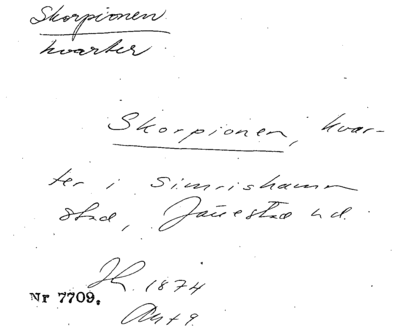 Skorpionen
kvarter
Skorpionen, kvar-
ter i Simrishamn
stad, Järrestad hd.
1874
Nr 7709,